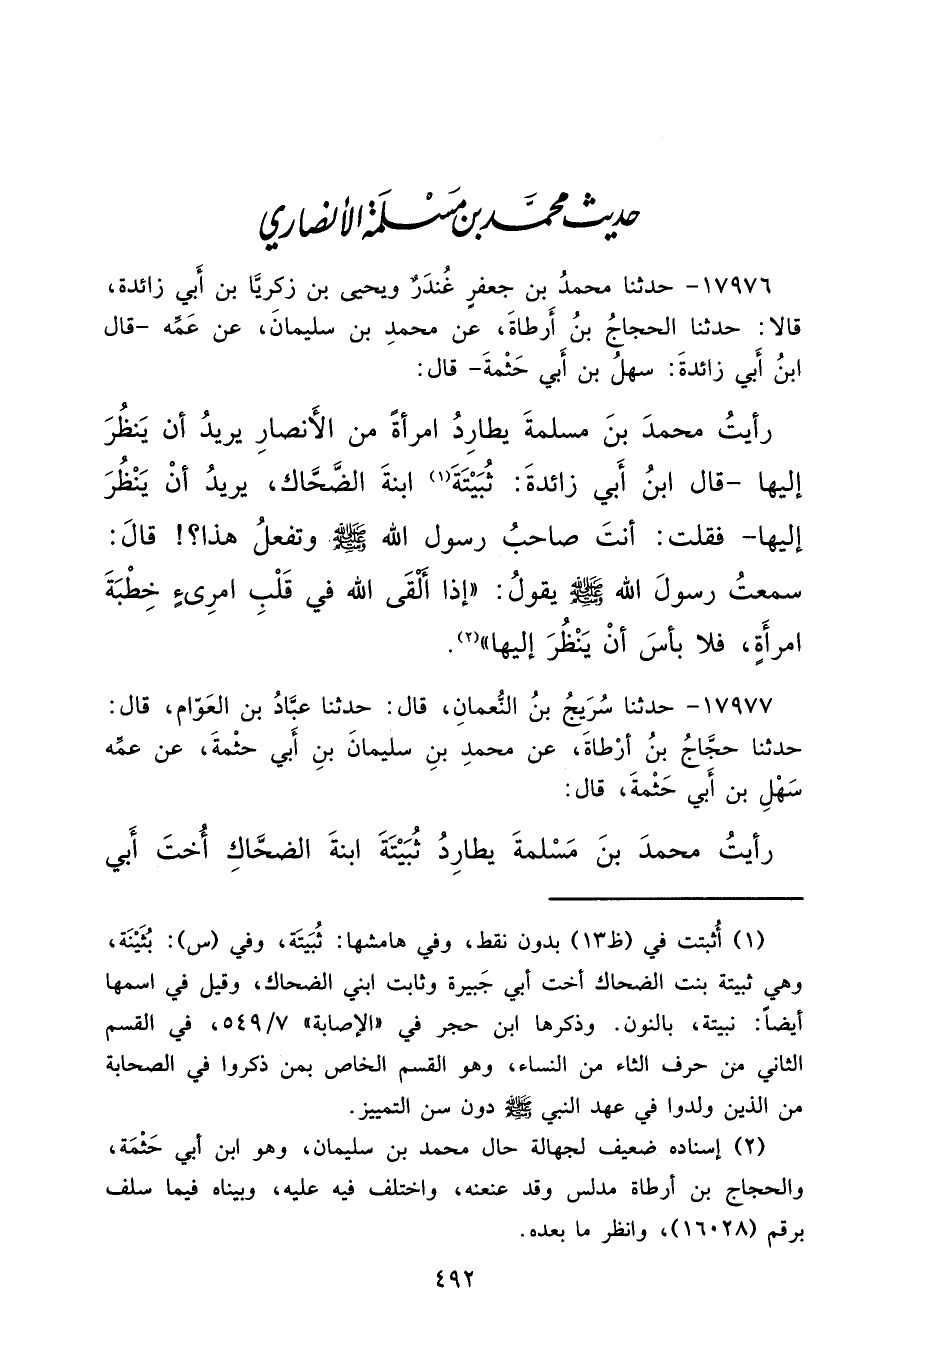 حديث محمَّد بن مَسْلمَة الأنصاري
١٧٩٧٦- حدثنا محمدُ بن جعفرٍ غُندَرٌ ويحيى بن زكريَّا بن أَبي زائدة،
قالا: حدثنا الحجاجُ بنُ أَرطاةَ، عن محمدِ بن سليمانَ، عن عَمِّه -قال
ابنُ أَبي زائدةَ: سهلُ بن أَبي حَثْمةَ- قال:
رأيتُ محمدَ بنَ مسلمةَ يطارِدُ امرأةً من الأَنصارِ يريدُ أن يَنظُرَ
إليها -قال ابنُ أَبي زائدةَ: ثُبَيْتَةَ(١) ابنةَ الضَّحَّاك، يريدُ أنْ يَنْظُرَ
إليها- فقلت: أنتَ صاحبُ رسول الله ﷺ وتفعلُ هذا؟! قالَ:
سمعتُ رسولَ الله ﷺ يقولُ: «إذا أَلْقَى الله في قَلْبِ امرِىءٍ خِطْبَةَ
امرأَةٍ، فلا بأسَ أنْ يَنْظُرَ إليها»(٢).
١٧٩٧٧- حدثنا سُرَيجُ بنُ النُّعمانِ، قال: حدثنا عبَّادُ بن العَوّام، قال:
حدثنا حجَّاجُ بنُ أرْطاةَ، عن محمدِ بنِ سليمانَ بنِ أَبي حثْمةَ، عن عمِّه
سَهْلِ بن أَبي حَثْمةَ، قال:
رأيتُ محمدَ بنَ مَسْلمةَ يطارِدُ ثُبَيْتَةَ ابنةَ الضحَّاكِ أُختَ أَبي
(١) أُثبتت في (ظ١٣) بدون نقط، وفي هامشها: ثُبَيتَة، وفي (س): بُثَيْنَة،
وهي ثبيتة بنت الضحاك أخت أبي جَبيرة وثابت ابني الضحاك، وقيل في اسمها
أيضاً: نبيتة، بالنون. وذكرها ابن حجر في «الإصابة» ٥٤٩/٧، في القسم
الثاني من حرف الثاء من النساء، وهو القسم الخاص بمن ذكروا في الصحابة
من الذين ولدوا في عهد النبي ﷺ دون سن التمييز.
(٢) إسناده ضعيف لجهالة حال محمد بن سليمان، وهو ابن أبي حَثْمَة،
والحجاج بن أرطاة مدلس وقد عنعنه، واختلف فيه عليه، وبيناه فيما سلف
برقم (١٦٠٢٨)، وانظر ما بعده.
٤٩٢